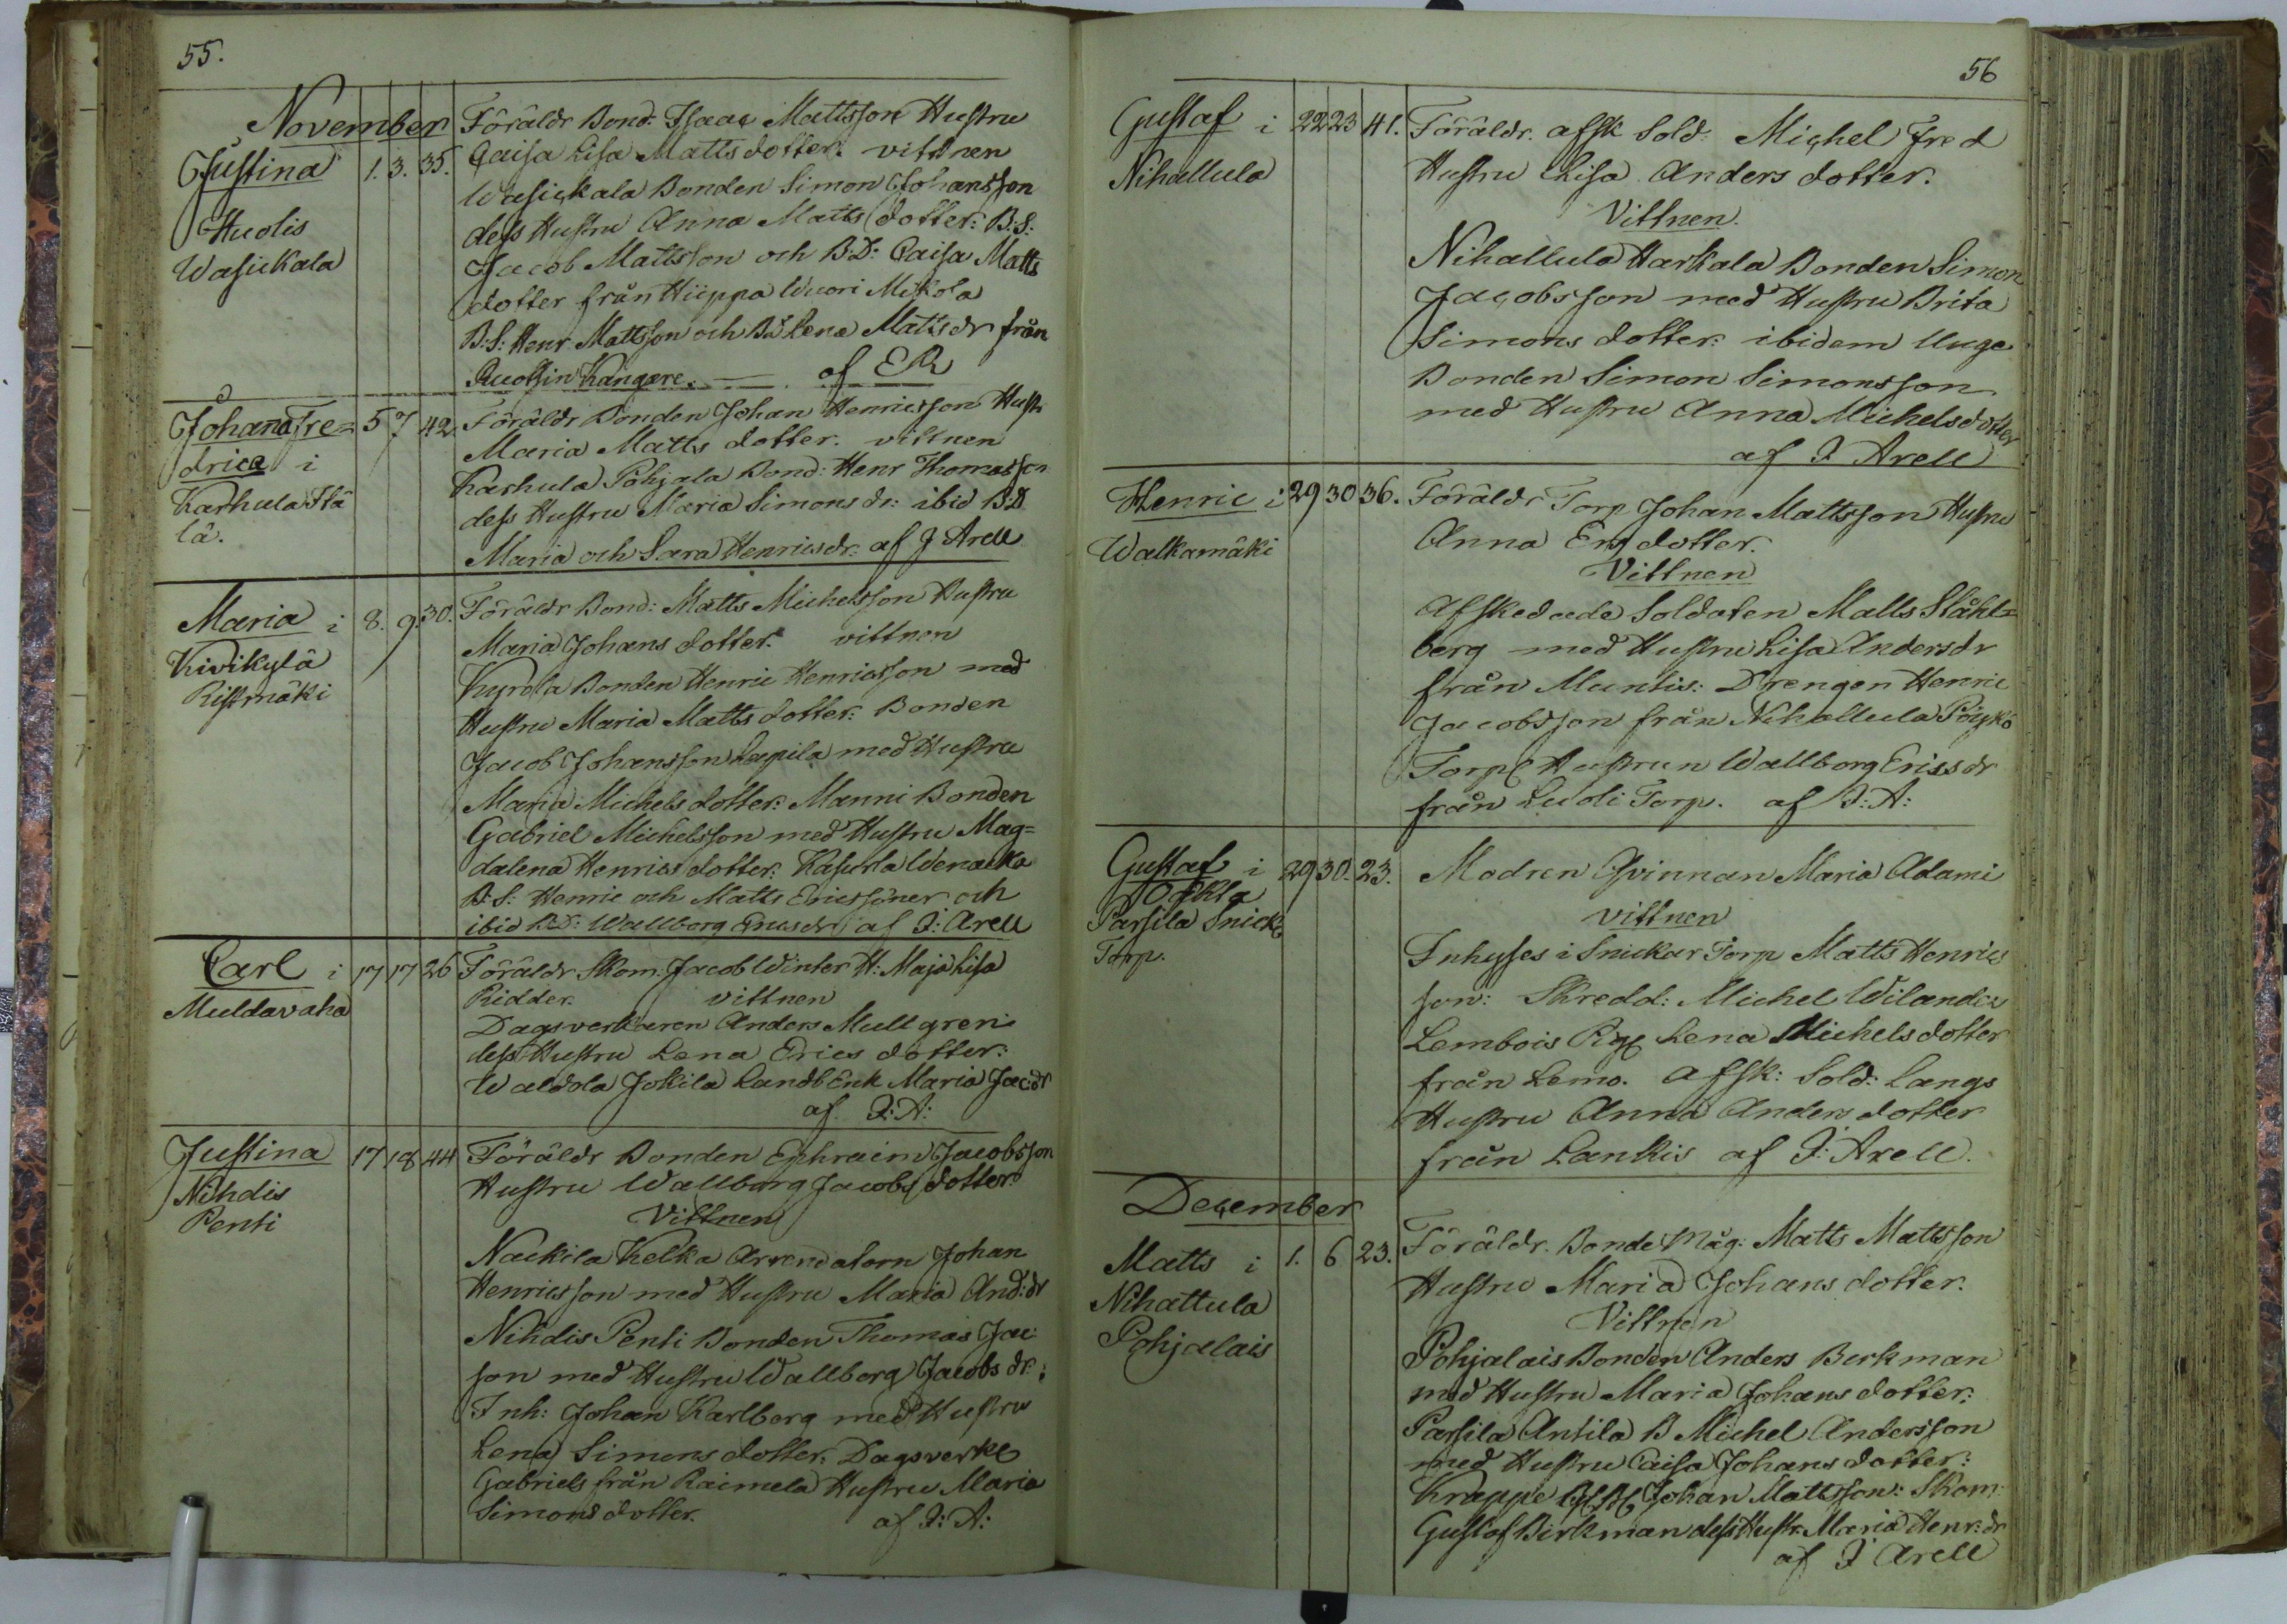 55.
November
Justina 1. 3. 35.
Huolis
Wasickala
Föräldr Bond: Isaac Mattsson Hustru
Caisa Lisa Matts dotter. vittnen
Wasickala Bonden Simon Johansson
dess Hustru Anna Matts dotter: B:S:
Jacob Mattsson och B:D: Caisa Matts
dotter från Hüppa Wuori Mikola
B:S: Henr Mattsson och Bd Lena Mattsdr från
Kangare. — af
Johana Fre= 5 7 42.
drica i
Karhula Itä
lä.
Föräldr Bonden Johan Henricsson Hustr
Maria Matts dotter. vittnen
Karhula Pohjala Bond: Henr Thomasson
dess Hustru Maria Simons dr: ibid B:D
Maria och Sara Henricsdr. af J Arell
Maria i 8. 9. 30.
Kivikylä
Ristmäki
Föräldr Bond: Matts Michelsson Hustru
Maria Johans dotter. vittnen
Kyrola Bonden Henric Henricsson med
Hustru Maria Matts dotter: Bonden
Jacob Johansson Lapila med Hustru
Maria Michels dotter: Manni Bonden
Gabriel Michelsson med Hustru Mag=
dalena Henrics dotter: Kasurla Wenaka
B:S: Henric och Matts Ericssöner och
ibid B:D: Wallborg Ericsdr af J: Arell
Carl i 17 17 26
Muldavaha
Föräldr Skom: Jacob Winter H: Maja Lisa
Ridder. vittnen
Dagsverkaren Anders Mullgren
dess Hustru Lena Erics dotter:
Waldola Jokila Landb Enk Maria Jac:dr
af J: A:
Justina 17 18 44
Nihdis
Penti
Föräldr Bonden Ephraim Jacobsson
Hustru Wallborg Jacobs dotter.
Vittnen
Nackila Kelka Arrendatorn Johan
Henricsson med Hustru Maria And:dr
Nihdis Penti Bonden Thomas Jac:
son med Hustru Wallborg Jacobs dr:
Inh: Johan Karlberg med Hustru
Lena Simons dotter: Dagsverk
Gabriels från Raimela Hustru Maria
Simons dotter. af J: A:
56
Gustaf i 22 23 41.
Nihallula
Föräldr. afsk Sold: Michel Fred
Hustru Lisa Anders dotter.
Vittnen.
Nihallula Harkala Bonden Simon
Jacobsson med Hustru Brita
Simons dotter: ibidem Unge
Bonden Simon Simonsson
med Hustru Anna Michelsdotter
af J Arell
Henric i 29 30 36.
Walkamäki
Föräldr Torp Johan Mattsson Hustru
Anna Ers dotter.
Vittnen
Afskedade Soldaten Matts Ståhl=
berg med Hustru Lisa Andersdr
från Muntis: Drengen Henric
Jacobsson från Nihallula
Torp Hustrun Wallborg Ericsdr
från Luoli Torp. af J: A:
Gustaf i 29 30. 23.
Parsila Snick
Torp.
Modren Qvinnan Maria Adami
vittnen
Inhyses i Snickar Torp Matts Henrics
son: Skredd: Michel Wilander
Lembois Pig Lena Michels dotter
från Lemo. Afsk: Sold: Langs
Hustru Anna Anders dotter
från Lankis af J: Arell.
December
Matts i 1. 6 23.
Nihattula
Pohjalais
Föräldr. Bonde Måg: Matts Mattsson
Hustru Maria Johans dotter.
Vittnen
Pohjalais Bonden Anders Berkman
med Hustru Maria Johans dotter:
Parsila Antila B Michel Andersson
med Hustru Caisa Johans dotter:
Krappe Johan Mattsson: Skom:
Gustaf Birkman dess Hustr. Maria Henr:dr
af J Arell